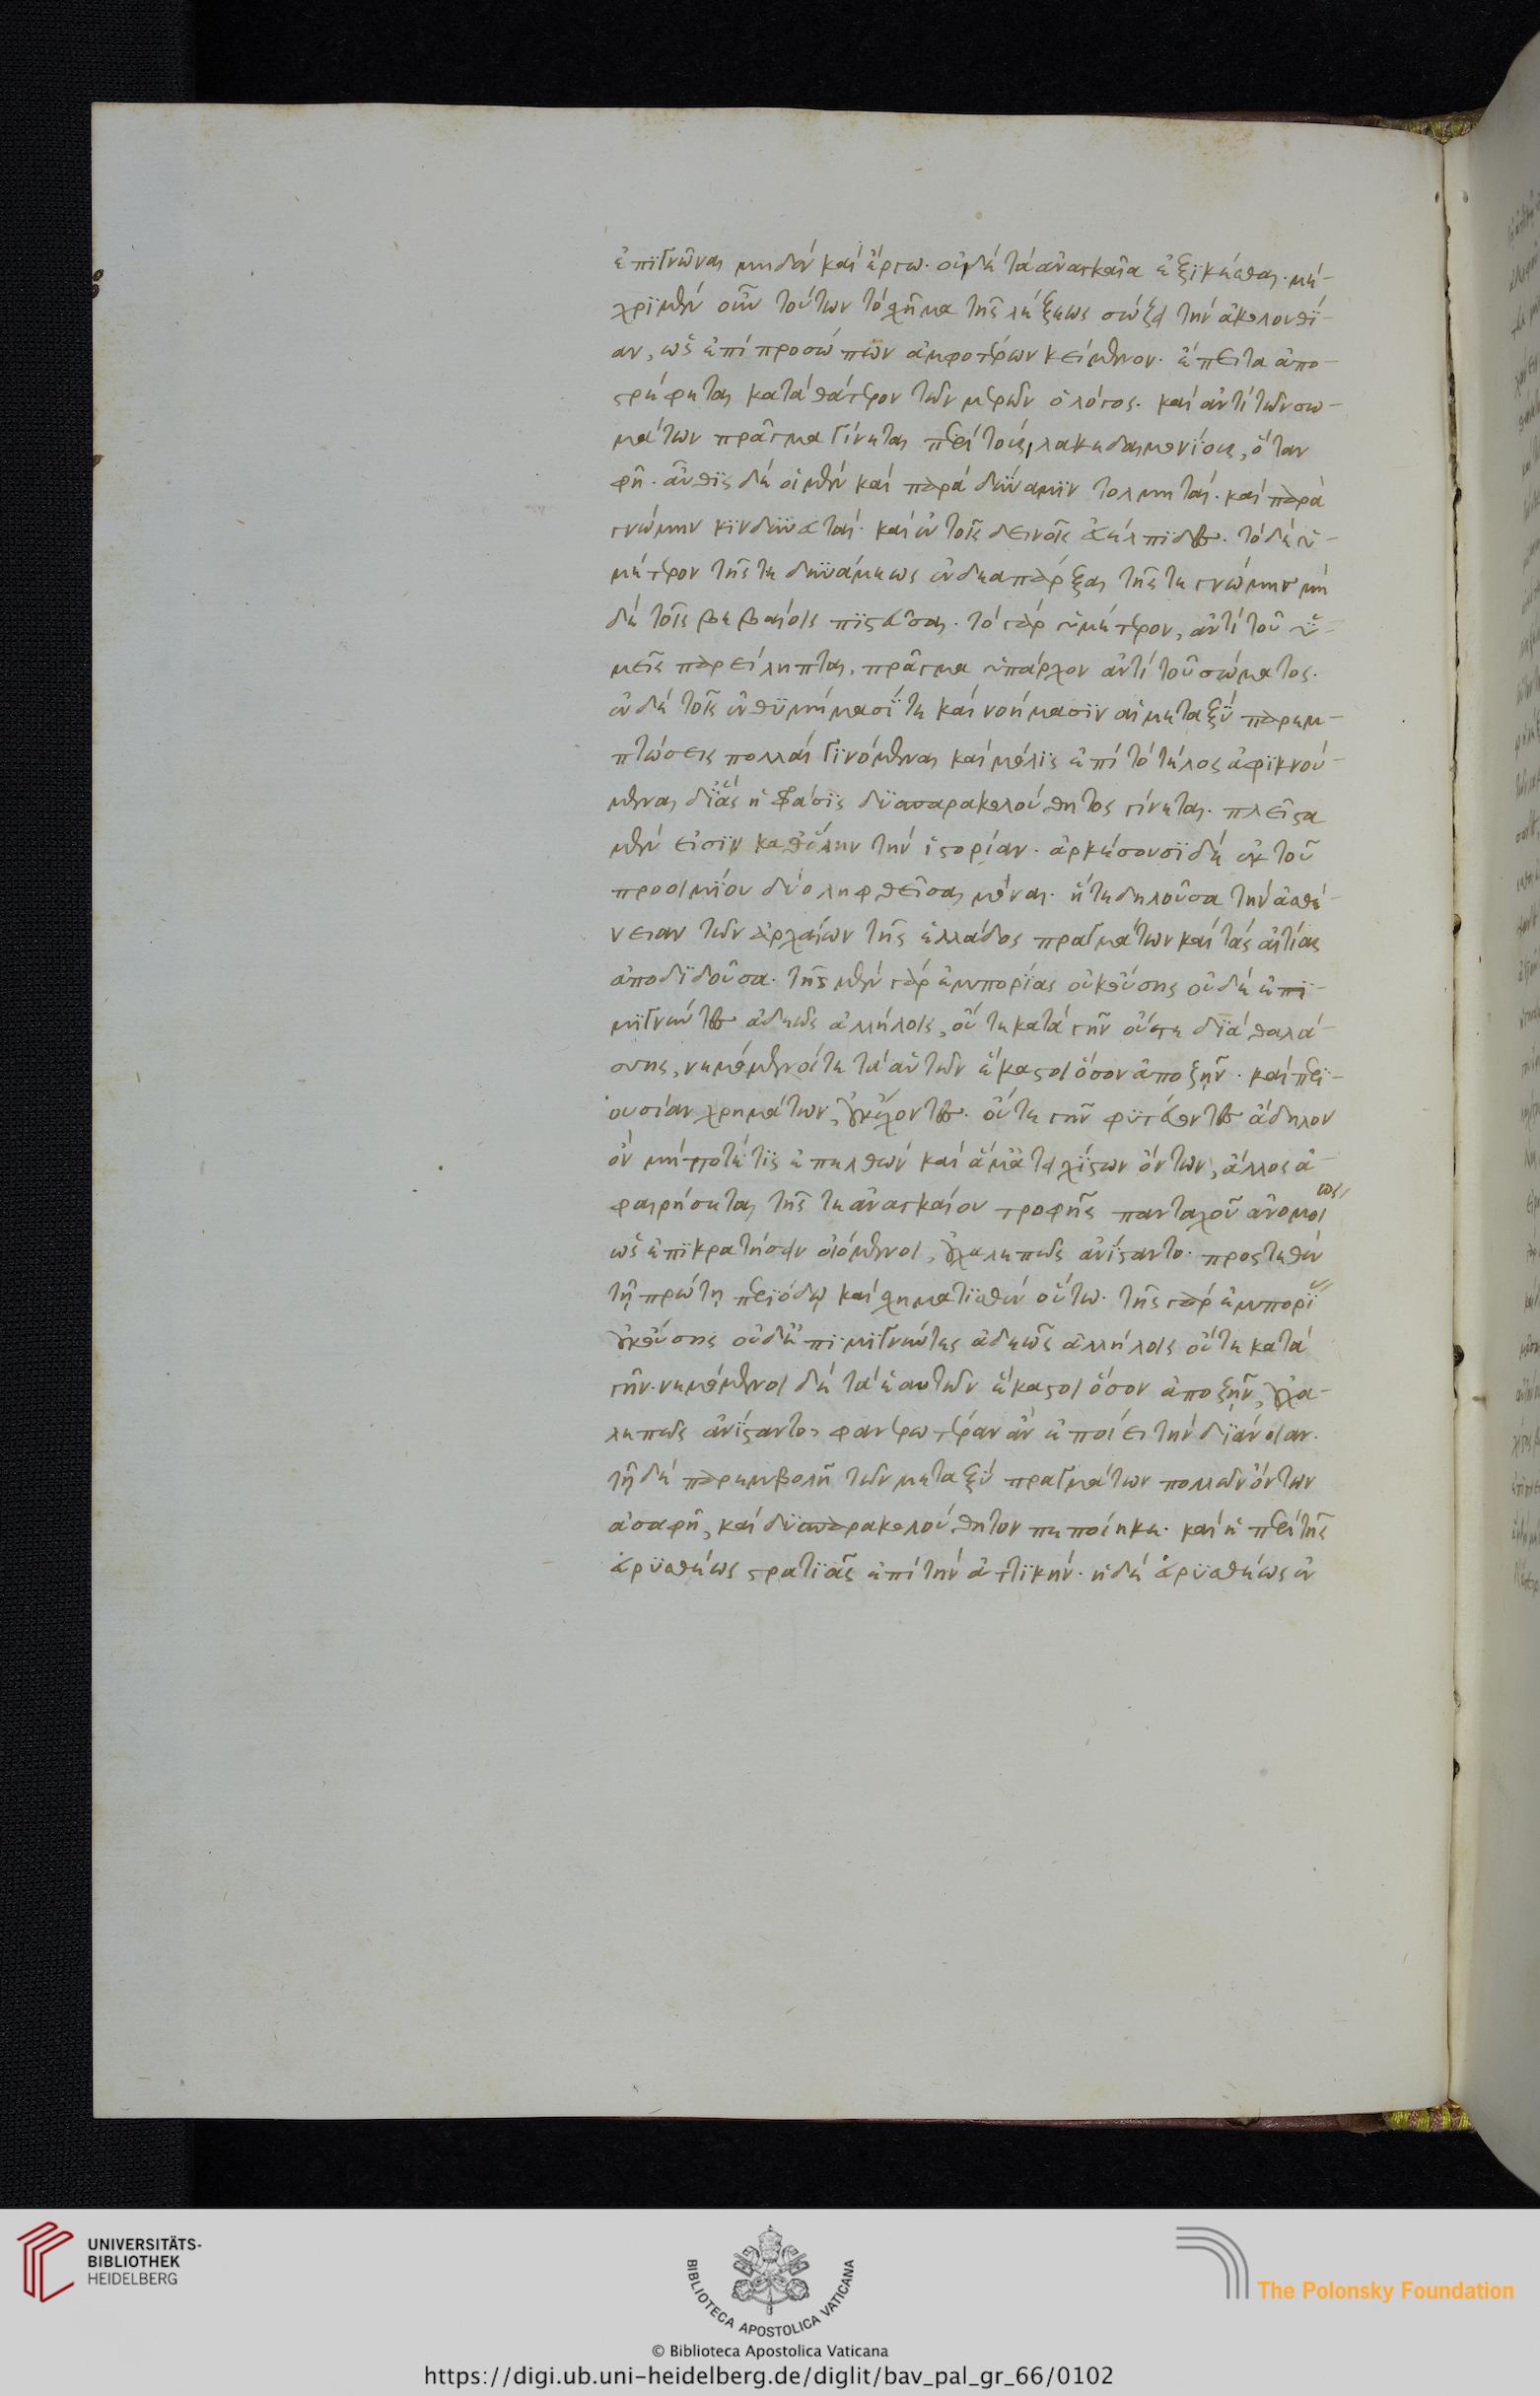 ἐπιγνῶναι μηδὲν καὶ ἔργω. οὐδὲ τὰ ἀναγκαῖα ἐξικέσθαι. μέ-
χρι μὲν οὖν τούτων τὸ σχῆμα τῆς λέξεως σώζει τὴν ἀκολουθί-
αν, ὡς ἐπὶ προσώπων ἀμφοτέρων κείμενον. ἔπειτα ἀπο-
στρέφεται κατὰ θάτερον τῶν μερῶν ὁ λόγος. καὶ ἀντὶ τῶν σω-
μάτων πρᾶγμα γίνεται περὶ τοὺς λακεδαιμονίους, ὅταν
φῆ. αὖθις δὲ οἱ μὲν καὶ παρὰ δύναμιν τολμηταί. καὶ παρὰ
γνώμην κινδυνευταί. καὶ ἐν τοῖς δεινοῖς εὐέλπιδες. τὸ δὲ ὑ-
μέτερον τῆς τε δυνάμεως ἐνδεᾶ πρᾶξαι τῆς τε γνώμης μη
δὲ τοῖς βεβαίοις πιστεῦσαι. τὸ γὰρ ὑμέτερον, ἀντὶ τοῦ ὑ-
μεῖς παρείληπται, πρᾶγμα ὑπάρχον ἀντὶ τοῦ σώματος.
ἐν δὲ τοῖς ἐνθυμήμασί τε καὶ νοήμασιν αἱ μεταξὺ παρεμ-
πτώσεις πολλαὶ γινόμεναι καὶ μόλις ἐπὶ τὸ τέλος ἀφικνού-
μεναι, δι' ἃς ἡ φράσις δυσπαρακολούθητος γίνεται. πλεῖσται
μὲν εἰσὶν καθ' ὅλην τὴν ἱστορίαν. ἀρκέσουσι δὲ ἐκ τοῦ
προοιμίου δύο ληφθεῖσαι μόναι. ἥ τε δηλοῦσα τὴν ἀσθέ-
νειαν τῶν ἀρχαίων τῆς ἑλλάδος πραγμάτων καὶ τὰς αἰτίας
ἀποδιδοῦσα. τῆς μὲν γὰρ ἐμπορίας οὐκ οὔσης οὐδὲ ἐπι-
μιγνύντες ἀδεῶς ἀλλήλοις, οὔτε κατὰ γῆν οὔτε διὰ θαλά-
σσης, νεμόμενοί τε τὰ αὐτῶν ἕκαστοι ὅσον ἀποζῆν. καὶ περι-
ουσίαν χρημάτων, οὐκ ἔχοντες. οὔτε γῆν φυτεύοντες ἄδηλον
ὂν μήποτέ τις ἐπελθὼν καὶ ἅμα ἀτειχίστων ὄντων, ἄλλος ἀ-
φαιρήσεται, τῆς τε ἀναγκαίου τροφῆς πανταχοῦ ἂν ὁμοίως
ὡς ἐπικρατήσειν οἰόμενοι, οὐ χαλεπῶς ἀνίσταντο. προστεθὲν
τῆ πρώτη περιόδω καὶ σχηματισθὲν οὕτω. τῆς γὰρ ἐμπορίας
οὐκ οὔσης οὐδ' ἐπιμιγνύντες ἀδεῶς ἀλλήλοις οὔτε κατὰ
γῆν. νεμόμενοι δὲ τὰ ἑαυτῶν ἕκαστοι ὅσον ἀποζῆν, οὐ χα-
λεπῶς ἀνίσταντο, φανερωτέραν ἂν ἐποίει τὴν διάνοιαν.
τῆ δὲ παρεμβολῆ τῶν μεταξὺ πραγμάτων πολλῶν ὄντων
ἀσαφῆ, καὶ δυσπαρακολούθητον πεποίηκε. καὶ ἡ περὶ τῆς
εὐρυσθέως στρατιᾶς ἐπὶ τὴν ἀττικήν. ἡ δὲ εὐρυσθέως ἐν
UNIVERSITÄTS-
BIBLIOTHEK
HEIDELBERG
BIBLIOTECA APOSTOLICA VATICANA
The Polonsky Foundation
© Biblioteca Apostolica Vaticana
https://digi.ub.uni-heidelberg.de/diglit/bav_pal_gr_66/0102